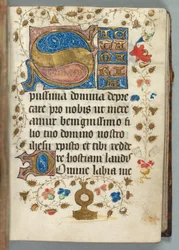 piissima domina depre
care pro nobis ut mere
amur benignissimo fi
lio tuo domino nostro
ihesu xpisto et tibi redde
re hostiam laudis
Domine labia me